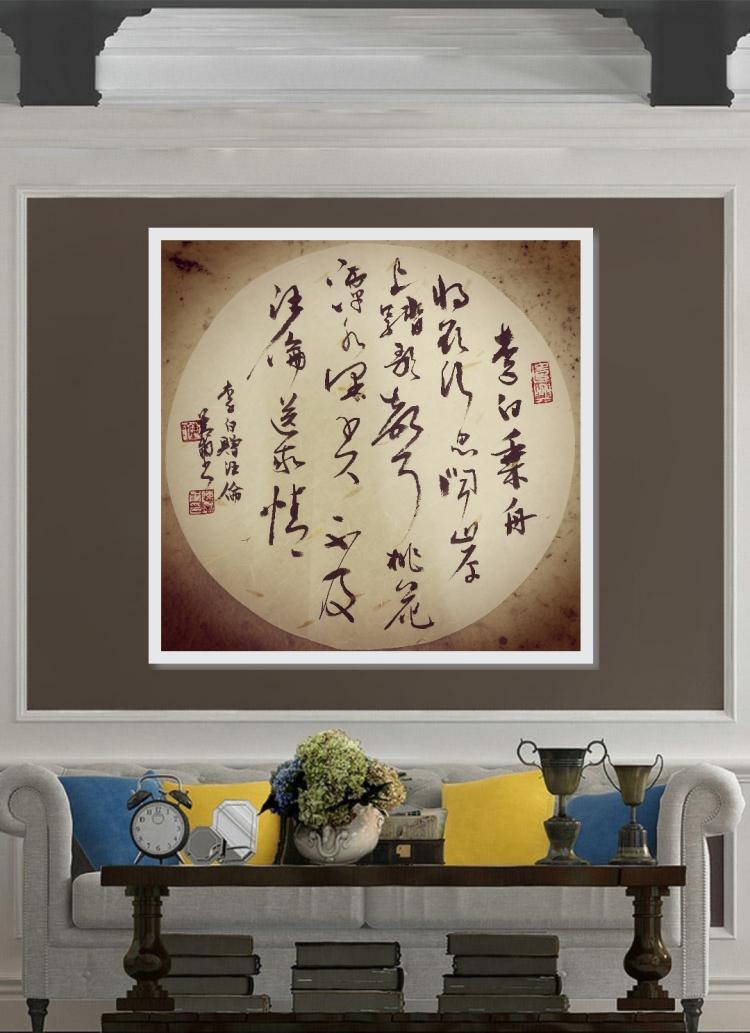 李白乘舟
將欲行忽聞岸
上踏歌聲桃花
潭水深千尺不及
汪倫送我情
李白贈汪倫